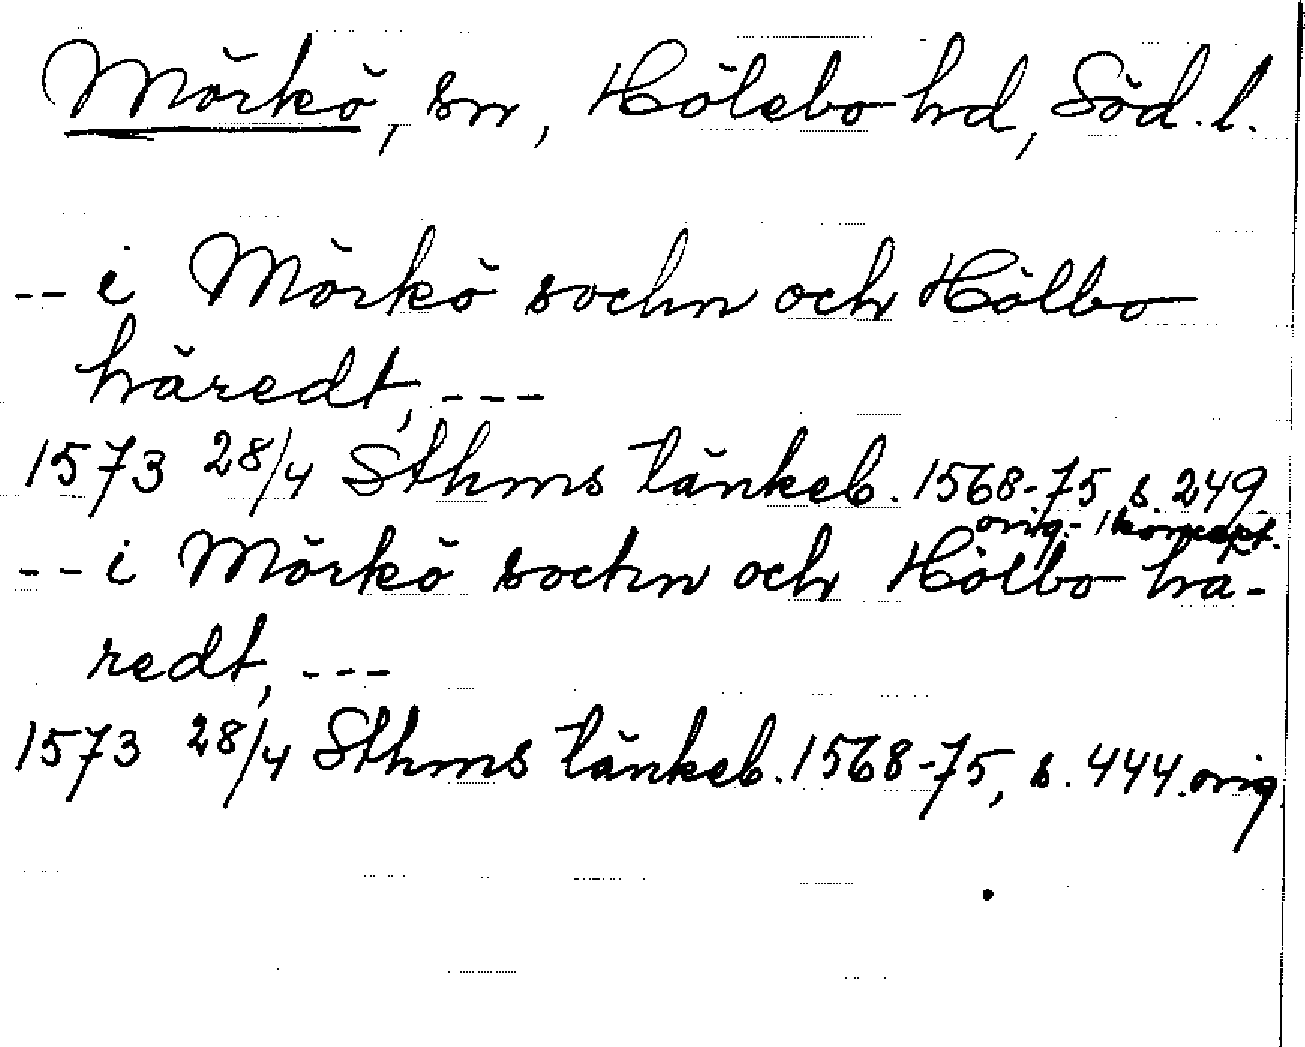 Mörkö, sn, Hölebo hd, Söd. l.
-- i Mörkö sochn och Hölbo
häredt, ---
1573 28/4 Sthms tänkeb. 1568-75, s. 249
orig.- / koncept.
-- i Mörkö sochn och Hölbo hä-
redt, ---
1573 28/4 Sthms tänkeb. 1568-75, s. 444. orig